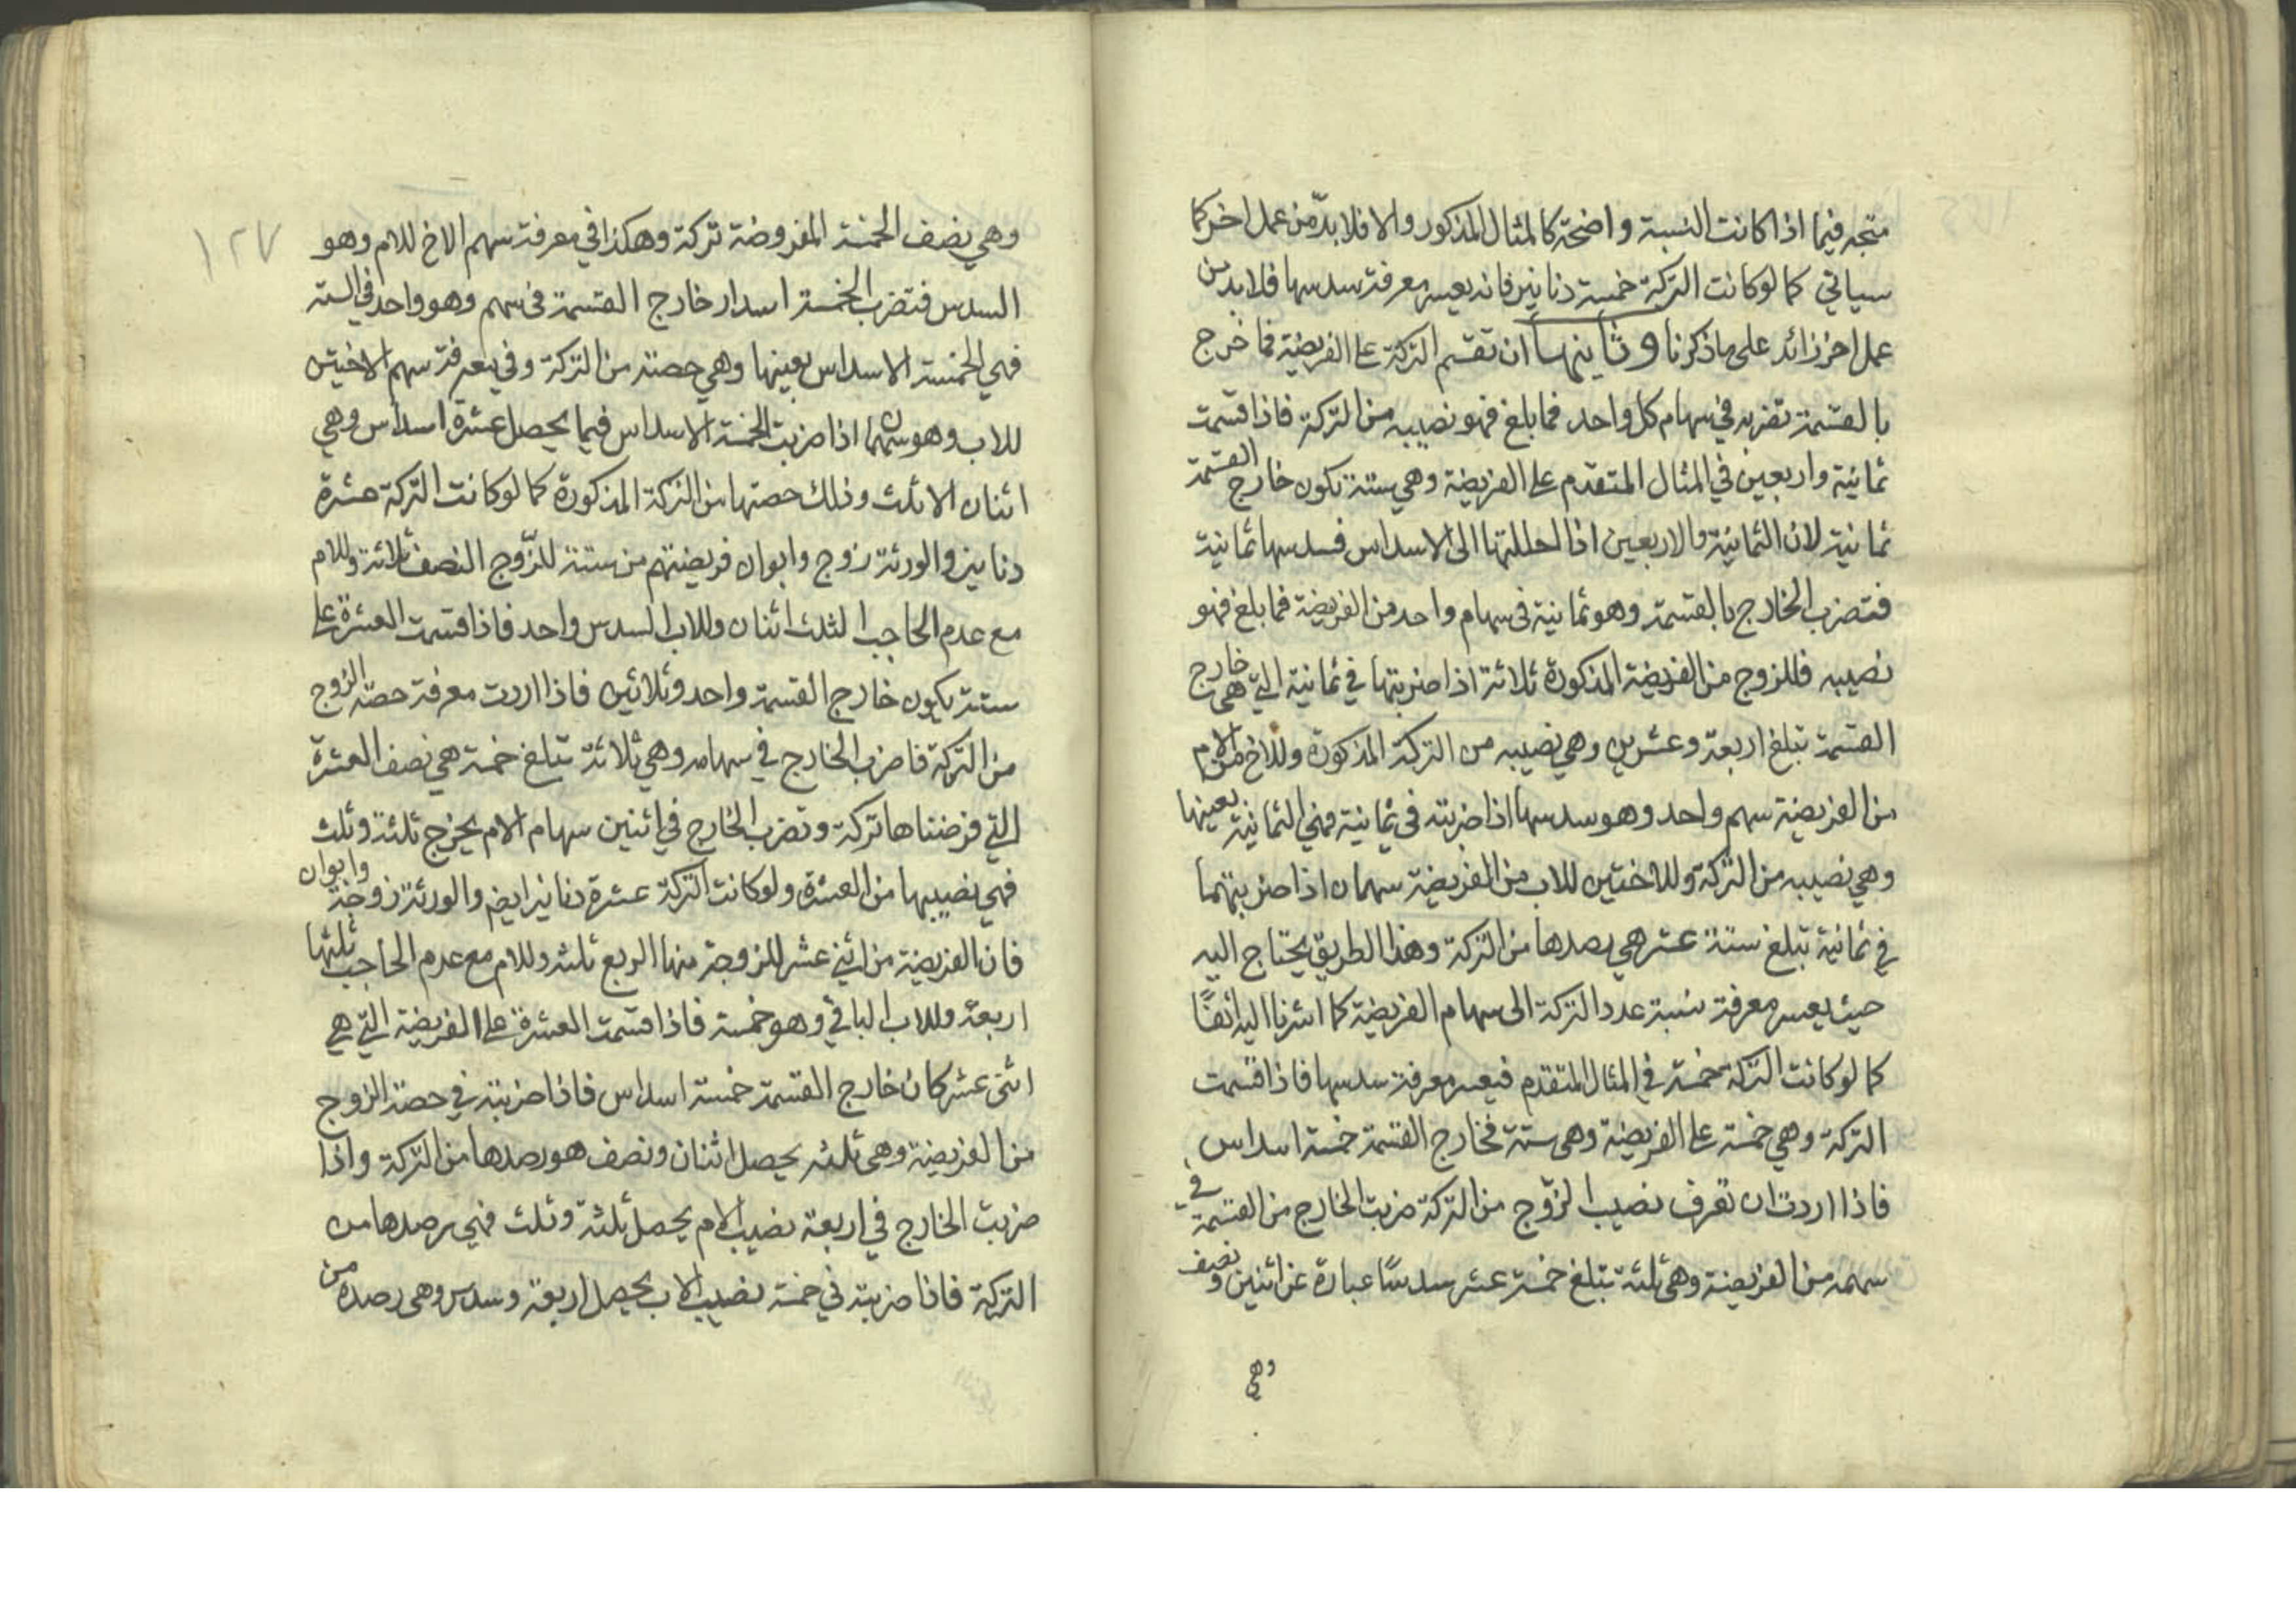 متجه فيما اذا كانت النسبة واضحة كالمثال المذكور والا فلا بدّ من عمل اخر كما
سياتي كما لو كانت التركة خمسة دنانير فانه يعسر معرفة سدسها فلا بد من
عمل اخر زائد على ما ذكرنا وثانيها ان تقسم التركة على الفريضة فما خرج
بالقسمة تضربه في سهام كل واحد فما بلغ فهو نصيبه من التركة فاذا قسمت
ثمانية واربعين في المثال المتقدم على الفريضة وهي ستة يكون خارج القسمة
ثمانية لان الثمانية والاربعين اذا حللتها الى الاسداس فسدسها ثمانية
فتضرب الخارج بالقسمة وهو ثمانية في سهام واحد من الفريضة فما بلغ فهو
نصيبه فللزوج من الفريضة المذكورة ثلاثة اذا ضربتها في ثمانية التي هي خارج
القسمة تبلغ اربعة وعشرين وهي نصيبه من التركة المذكورة وللاخ من الام
من الفريضة سهم واحد وهو سدسها اذا ضربته في ثمانية فهي الثمانية بعينها
وهي نصيبه من التركة وللاختين للاب من الفريضة سهمان اذا ضربتهما
في ثمانية تبلغ ستة عشر هي رصدها من التركة وهذا الطريق يحتاج اليه
حيث يعسر معرفة نسبة عدد التركة الى سهام الفريضة كما اشرنا اليه انفًا
كما لو كانت التركة خمسة في المثال المتقدم فيعسر معرفة سدسها فاذا قسمت
التركة وهي خمسة على الفريضة وهي ستة فخارج القسمة خمسة اسداس
فاذا اردت ان تعرف نصيب الزّوج من التركة ضربت الخارج من القسمة في
سهمه من الفريضة وهي ثلثة تبلغ خمسة عشر سدسًا عبارة عن اثنين ونصف
وهي
١٢٧
وهي نصف الخمسة المفروضة تركة وهكذا في معرفة سهم الاخ للام وهو
السدس فتضرب الخمسة اسدار خارج القسمة في سهم وهو واحد في الستة
فهي الخمسة الاسداس بعينها وهي حصته من التركة وفي معرفة سهم الاختين
للاب وهو سهمان اذا ضربت الخمسة الاسداس فيما يحصل عشرة اسداس وهي
اثنان الا ثلث وذلك حصتها من التركة المذكورة كما لو كانت التركة عشرة
دنانير والورثة زوج وابوان فريضتهم من ستة للزّوج النصف ثلاثة وللام
مع عدم الحاجب الثلث اثنان وللاب السدس واحد فاذا قسمت العشرة على
ستة يكون خارج القسمة واحد وثلاثين فاذا اردت معرفة حصة الزوج
من التركة فاضرب الخارج في سهامه وهي ثلاثة تبلغ خمسة هي نصف العشرة
التي فرضناها تركة وتضرب الخارج في اثنين سهام الام يخرج ثلثة وثلث
فهي نصيبها من العشرة ولو كانت التركة عشرة دنانير ايضا والورثة زوجة وابوان
فان الفريضة من اثني عشر للزوجة منها الربع ثلثه وللام مع عدم الحاجب ثلثها
اربعة وللاب الباقي وهو خمسة فاذا قسمت العشرة على الفريضة التي هي
اثنى عشر كان خارج القسمة خمسة اسداس فاذا ضربته في حصة الزوج
من الفريضة وهي ثلثه يحصل اثنان ونصف هو رصدها من التركة واذا
ضربت الخارج في اربعة نصيب الام يحصل ثلثة وثلث فهي رصدها من
التركة فاذا ضربته في خمسة نصيب الاب يحصل اربعة وسدس وهي رصده من